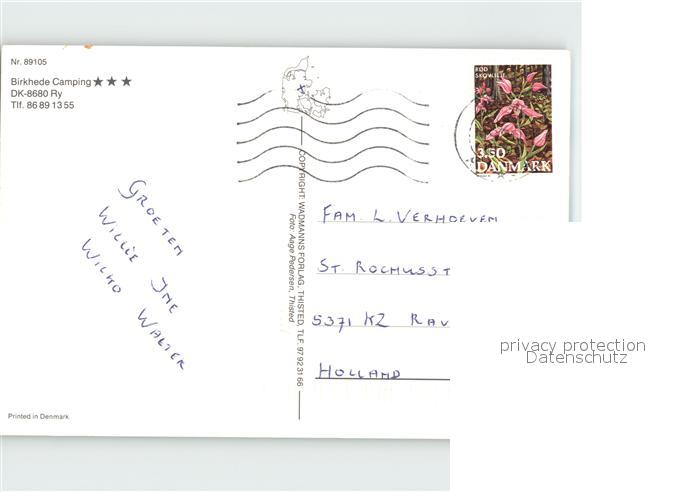 Nr. 89105
Birkhede Camping ★★★
DK-8680 Ry
Tlf. 86 89 13 55
GROETEN
WILLIE INE
WILKO WALTER
Printed in Denmark
COPYRIGHT: WADMANNS FORLAG, THISTED, TLF. 97 92 31 66
Foto: Aage Pedersen, Thisted
RØD
SKOVLILIE
3.50
DANMARK
FAM. L. VERHOEVEN
ST. ROCHUSST
5371 KZ RAV
HOLLAND
privacy protection
Datenschutz